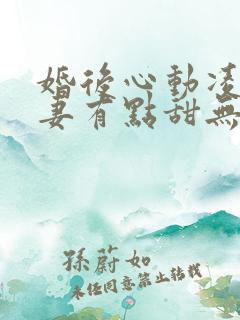 婚後心動凌
妻有點甜無
孫蔚如
未經同意禁止轉載